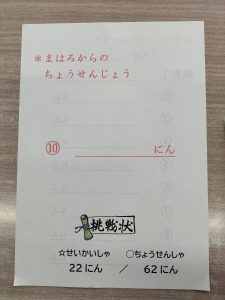 ＊まほろからの
ちょうせんじょう
⑩ にん
挑戦状
☆せいかいしゃ ○ちょうせんしゃ
22にん / 62にん